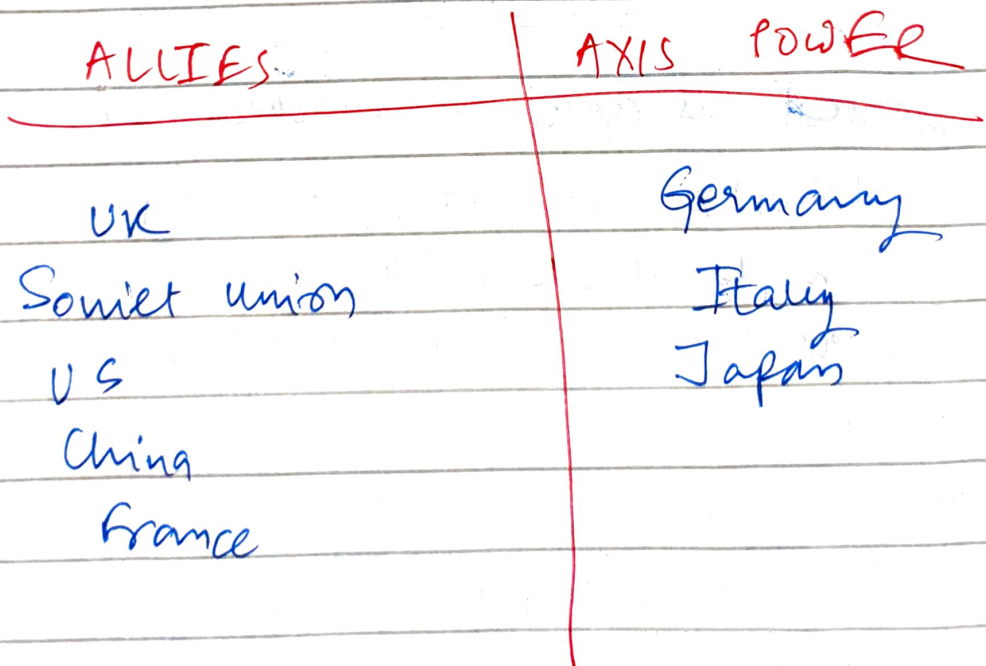 ALLIES AXIS POWER
UK Germany
Soviet union Italy
US Japan
China
France